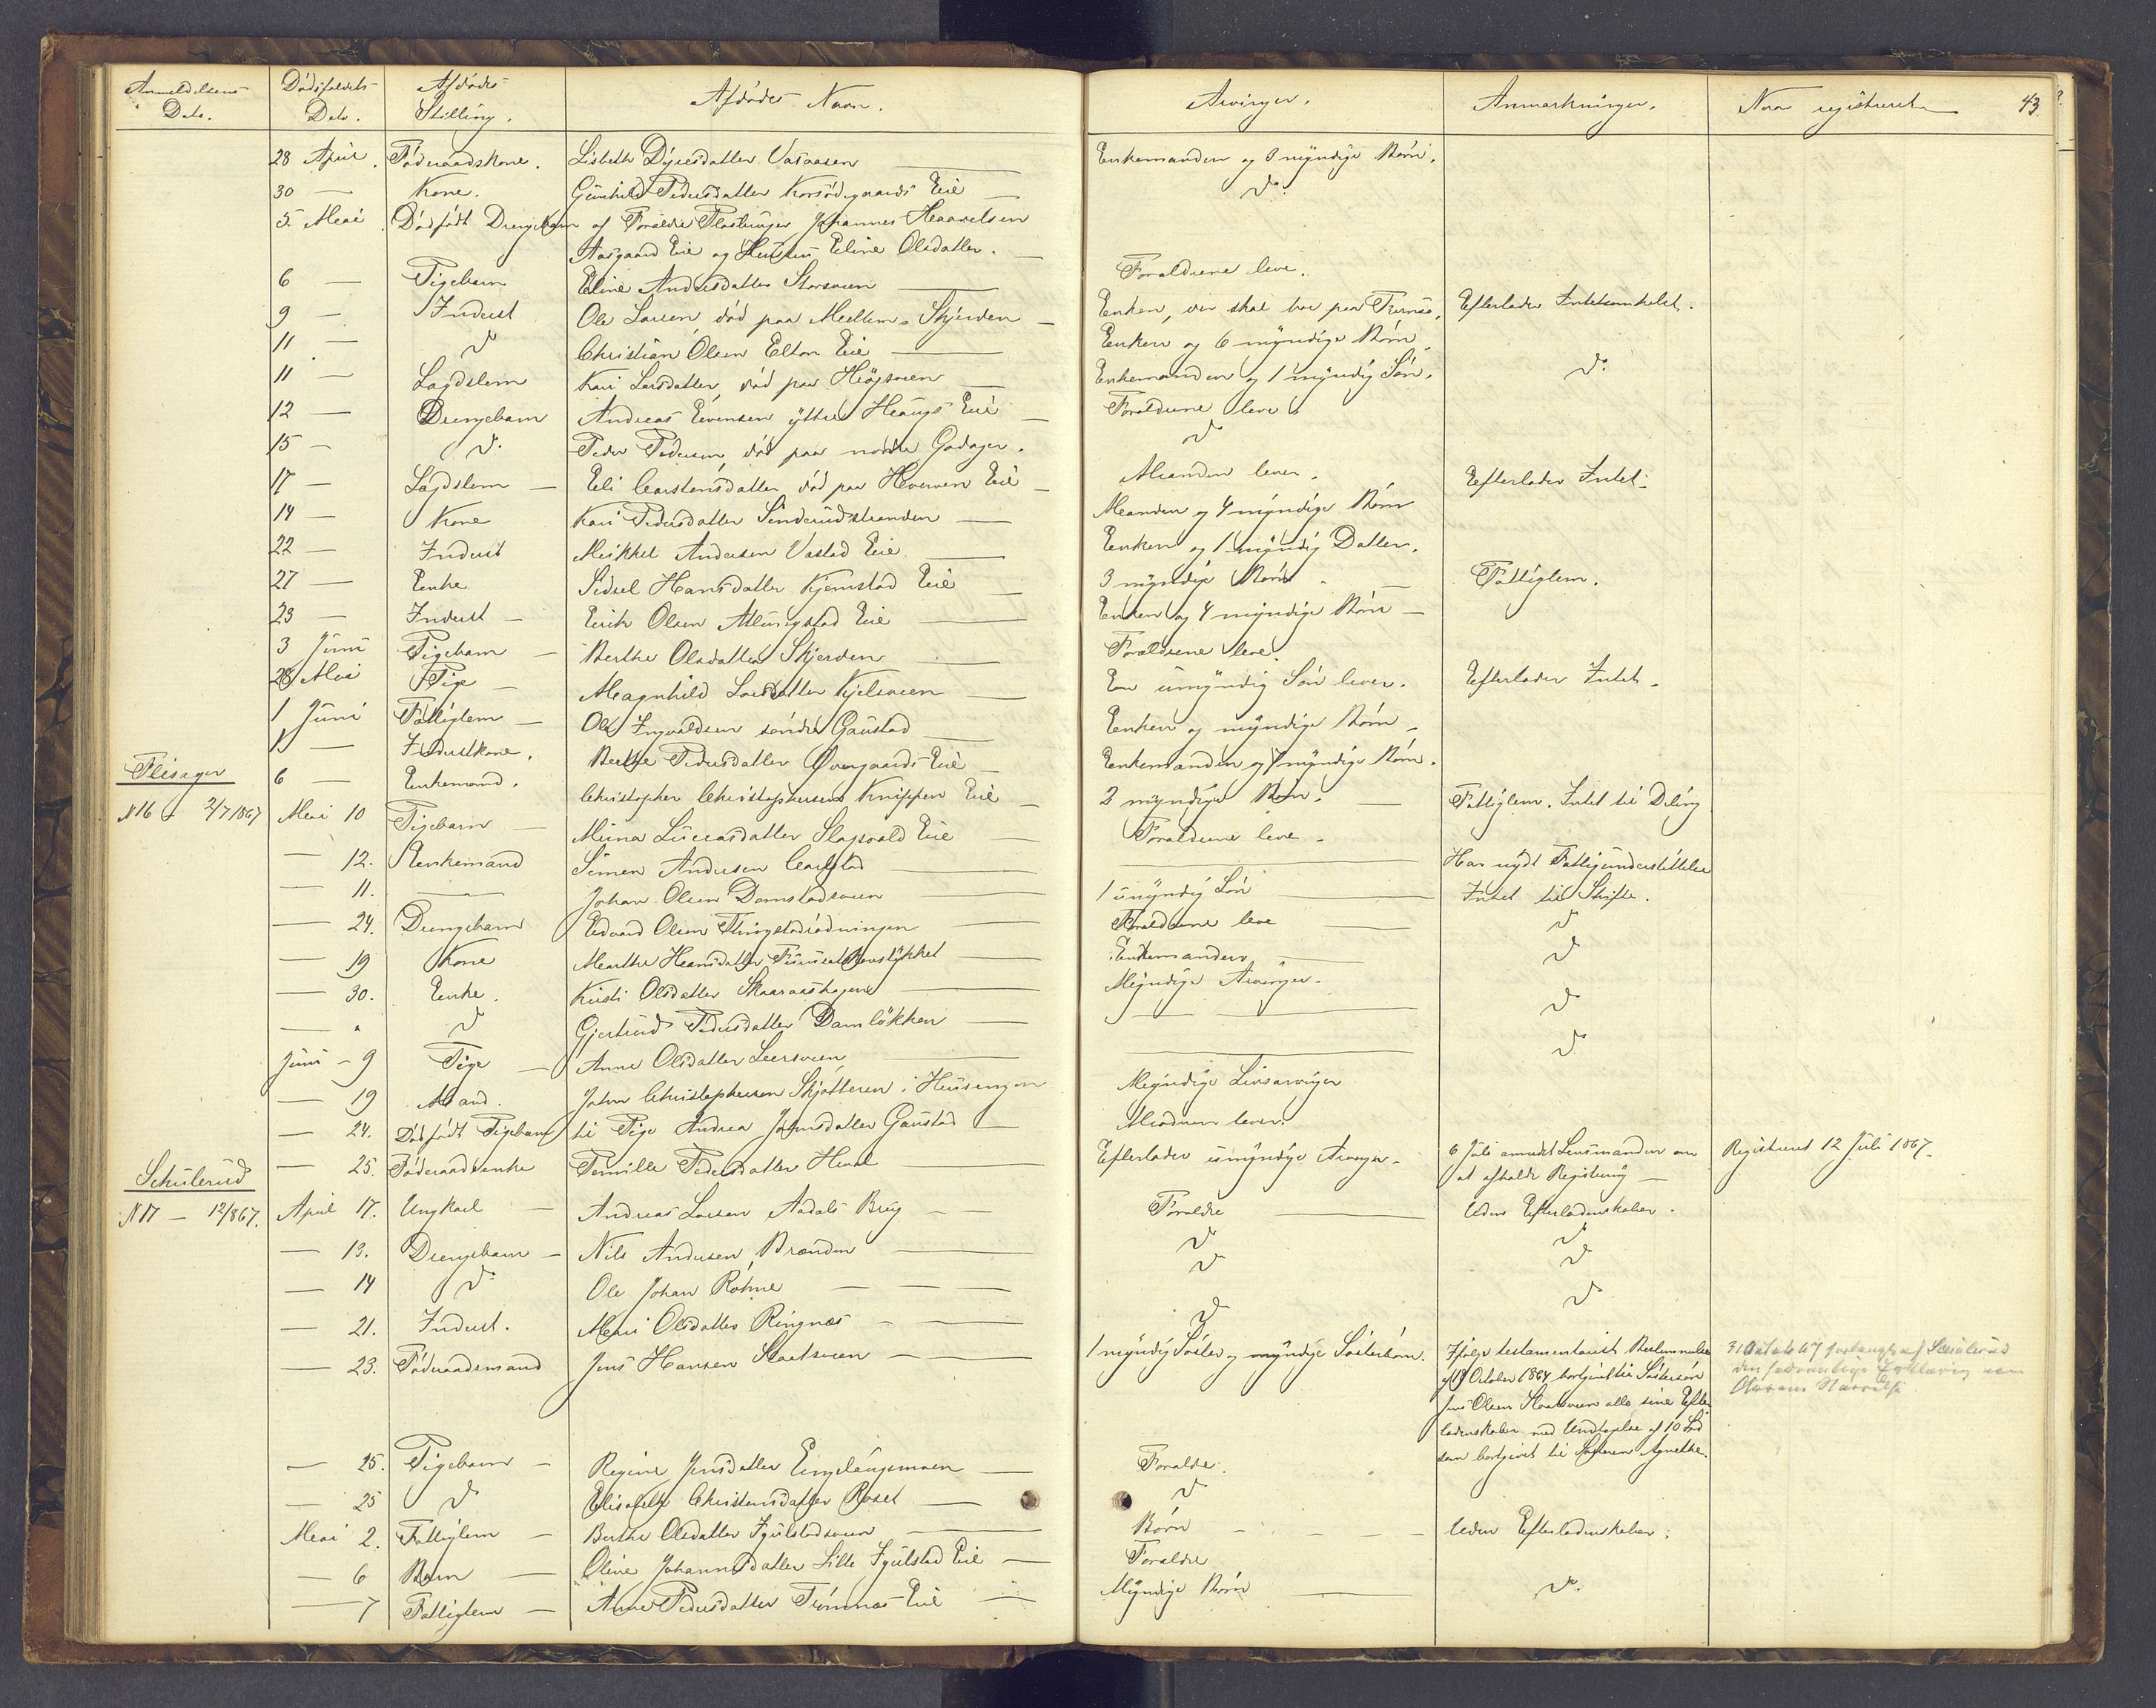 Anmeldelsens Dato. Dödsfaldets Dato. Afdödes Stilling. Afdödes Navn. Arvinger. Anmærkninger. Naar registreret 43.
28 April. Föderaadskone. Lisbeth Dyresdatter Enkemanden og 3 myndige Børn.
30 — Kone. Gunhild Pedersdatter Korsödegaards Eie — do
5. Mai Dödfödt Drengebarn af Forældre Johannes
Aasgaard Eie og Hustru Eline Olsdatter. —
6 — Pigebarn Eline Andersdatter Storsveen — Forældrene leve.
9 — Inderst Ole Larsen, död paa Mellem-Skjerden — Enken, der skal bo paa Efterlader Intetsomhelst.
11 — do Christian Olsen Elton Eie — Enken og 6 myndige Børn
11 — Lægdslem Kari Larsdatter, död paa — Enkemanden og 1 myndig Sön. do
12 — Drengebarn Andreas Evensen yttre Haugs Eie — Forældrene leve
15 — do Peder Pedersen, död paa nordre Godager. do
17 — Lægdslem — Eli Carstensdatter, död paa Eie — Manden lever. Efterlader Intet.
14 — Kone Kari Pedersdatter Sinderudstranden — Manden og 4 myndige Børn
22 — Inderst Mikkel Andersen Vestad Eie — Enken og 1 myndig Datter.
27 — Enke Sidsel Hansdatter Kjemstad Eie — 3 myndige Børn — Fattiglem.
23 — Inderst — Erik Olsen Eie — Enken og 4 myndige Børn —
3 Juni Pigebarn — Berthe Olsdatter Skjerden — Forældrene leve
28 Mai Pige — Magnhild Larsdatter Kjelsveen — En umyndig Sön lever. Efterlader Intet.
1 Juni Fattiglem — Ole Ingvaldsen söndre Gaustad — Enken og myndige Børn
— Inderstkone. Berthe Pedersdatter Övergaards Eie — Enkemanden og myndige Børn.
Flisager 6 — Enkemand. Christopher Christophersen Knippen Eie — 2 myndige Børn. — Fattiglem. Intet til Deling
N 16 - 2/7 1867 Mai 10 Pigebarn — Mina Eie — Forældrene leve.
— 12. Enkemand Simen Andersen — Har nydt Fattigunderstöttelse
— 11. — Johan Olsen Domstadsveen — 1 umyndig Sön — Intet til Skifte.
— 24. Drengebarn Edvard Olsen — Forældrene leve — do
— 19 Kone Marthe Hansdatter — Enkemanden — do
— 30. Enke. Kirsti Olsdatter Skaaraashagen — Myndige Arvinger. do
— " do Gjertrud Pedersdatter Damlökken — do
Juni - 9 Pige — Anne Olsdatter Leersveen —
— 19 Mand. Johan Christophersen Skjötteren i — Myndige Livsarvinger
— 24. Dödfödt Pigebarn til Pige Andrea Johnsdatter Gaustad — Moderen lever.
Schulerud — 25. Föderaadsenke Pernille Pedersdatter — Efterlader umyndige Arvinger. 6 Juli anmodet Lensmanden om Registreret 12 Juli 1867.
at afholde Registrering —
N 17 — 12/7 867. April 17. Ungkarl — Andreas Larsen Aadals Brug — Forældre — Uden Efterladenskaber.
— 13. Drengebarn — Nils Andersen Brænden — do do
— 14 do Ole Johan Rohne — do do
— 21. Inderst. Mari Olsdatter Ringnæs — do do
— 23. Föderaadsmand Jens Hansen Slaatsveen — 1 myndig Söster og myndige Sösterbørn. Ifölge testamentarisk Bestemmelse
af 19 October 1864 bortgivet til Söstersön
Jens Olsen Slaatsveen alle sine Efter-
ladenskaber med Undtagelse af 10 Spd
som bortgivet til Söstren Agnethe.
— 25. Pigebarn — Regine Jensdatter — Forældre.
— 25 do Elisabeth Christensdatter — do
Mai 2. Fattiglem — Berthe Olsdatter Igulstadsveen — Børn — Uden Efterladenskaber.
— 6 Barn — Oline Johannesdatter Lille Igulstad Eie — Forældre
— 7 Fattiglem — Anne Pedersdatter Eie — Myndige Børn — do